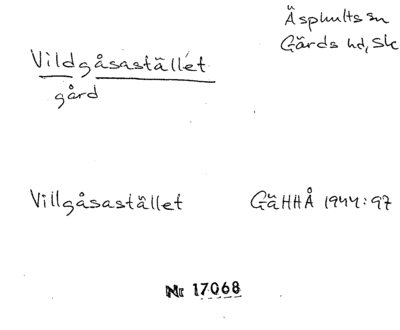 Äsphults sn
Gärds hd, Sk
Vildgåsastället
gård
Villgåsastället GäHHÅ 1944:97
Nr 17068